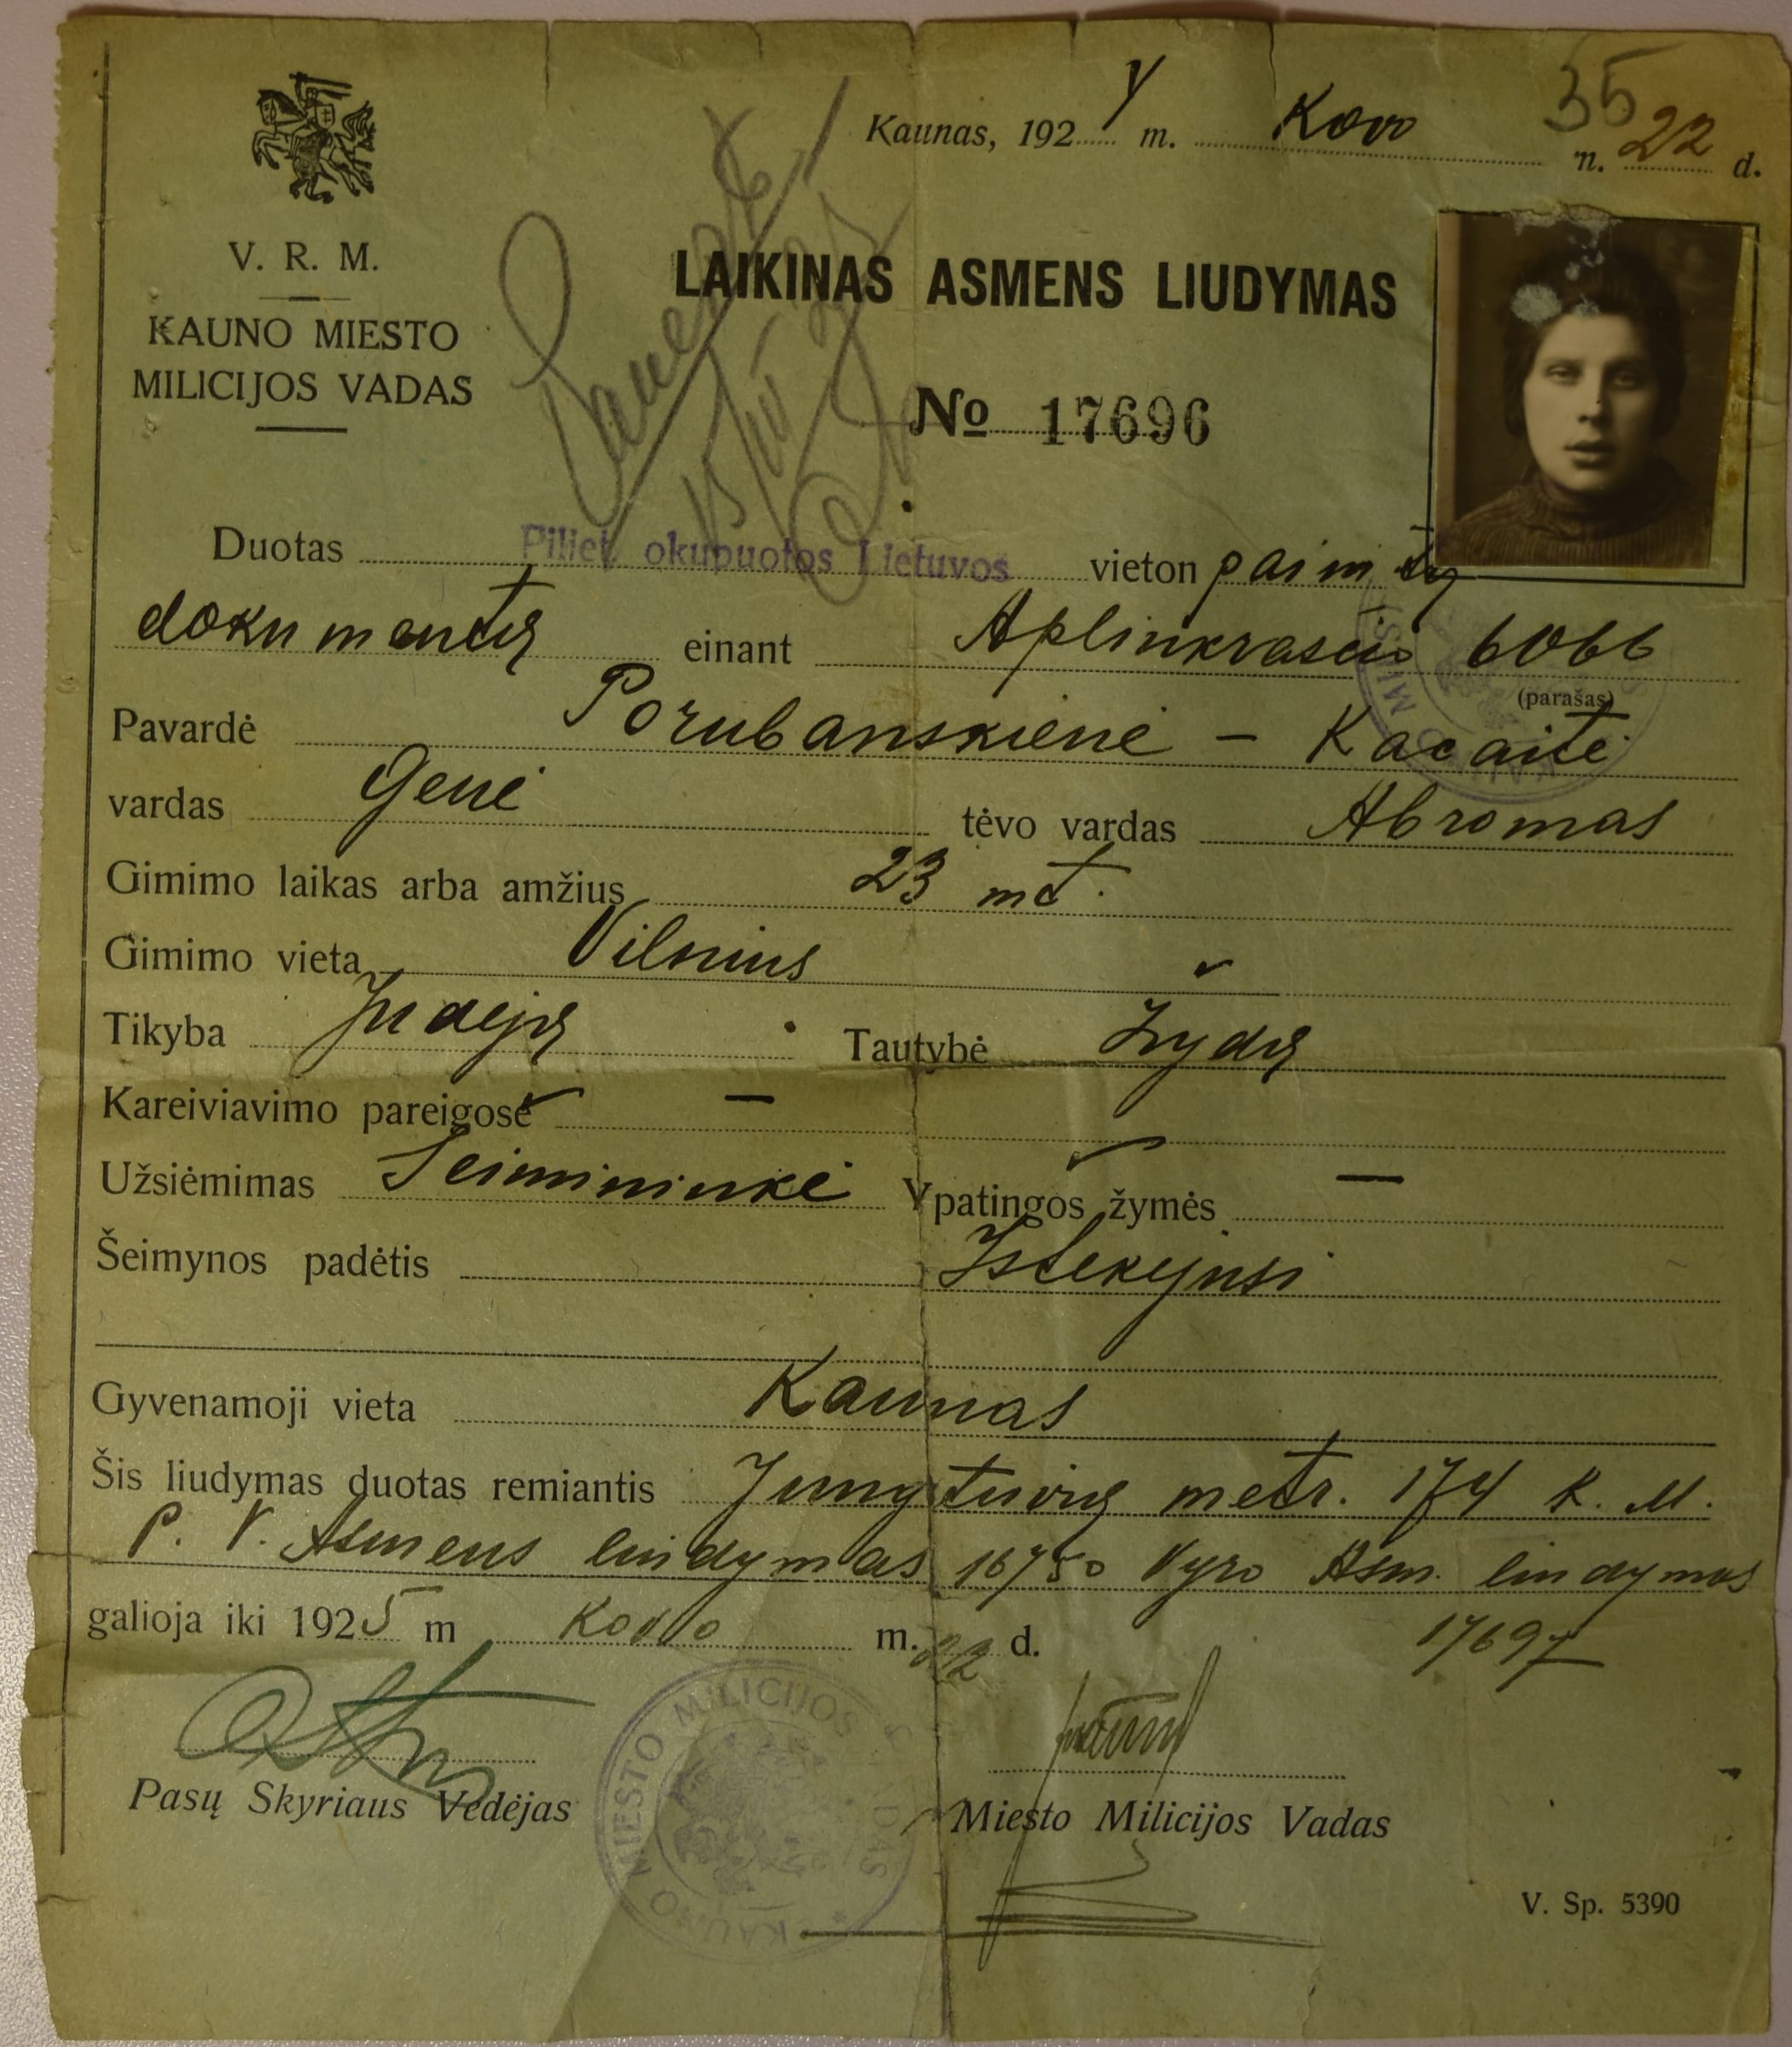 35
Kaunas, 1924 m. Kovo n. 22 d.
V. R. M.
KAUNO MIESTO
MILICIJOS VADAS
LAIKINAS ASMENS LIUDYMAS
№ 17696
Duotas Piliet. okupuotos Lietuvos vieton paimtų
dokumentų einant Aplinkraščio 6066
(parašas)
Pavardė Porubanskienė – Kacaitė
vardas Genė tėvo vardas Abromas
Gimimo laikas arba amžius 23 mt.
Gimimo vieta Vilnius
Tikyba Judėjų Tautybė Žydų
Kareiviavimo pareigose —
Užsiėmimas Šeimininkė Ypatingos žymės —
Šeimynos padėtis Ištekėjusi
Gyvenamoji vieta Kaunas
Šis liudymas duotas remiantis Jungtuvių metr. 174 K. M.
P. V. Asmens liudymas 16750 Vyro Asm. liudymas
17697
galioja iki 1925 m Kovo m. 22 d.
Pasų Skyriaus Vedėjas Miesto Milicijos Vadas
KAUNO MIESTO MILICIJOS VADAS
V. Sp. 5390